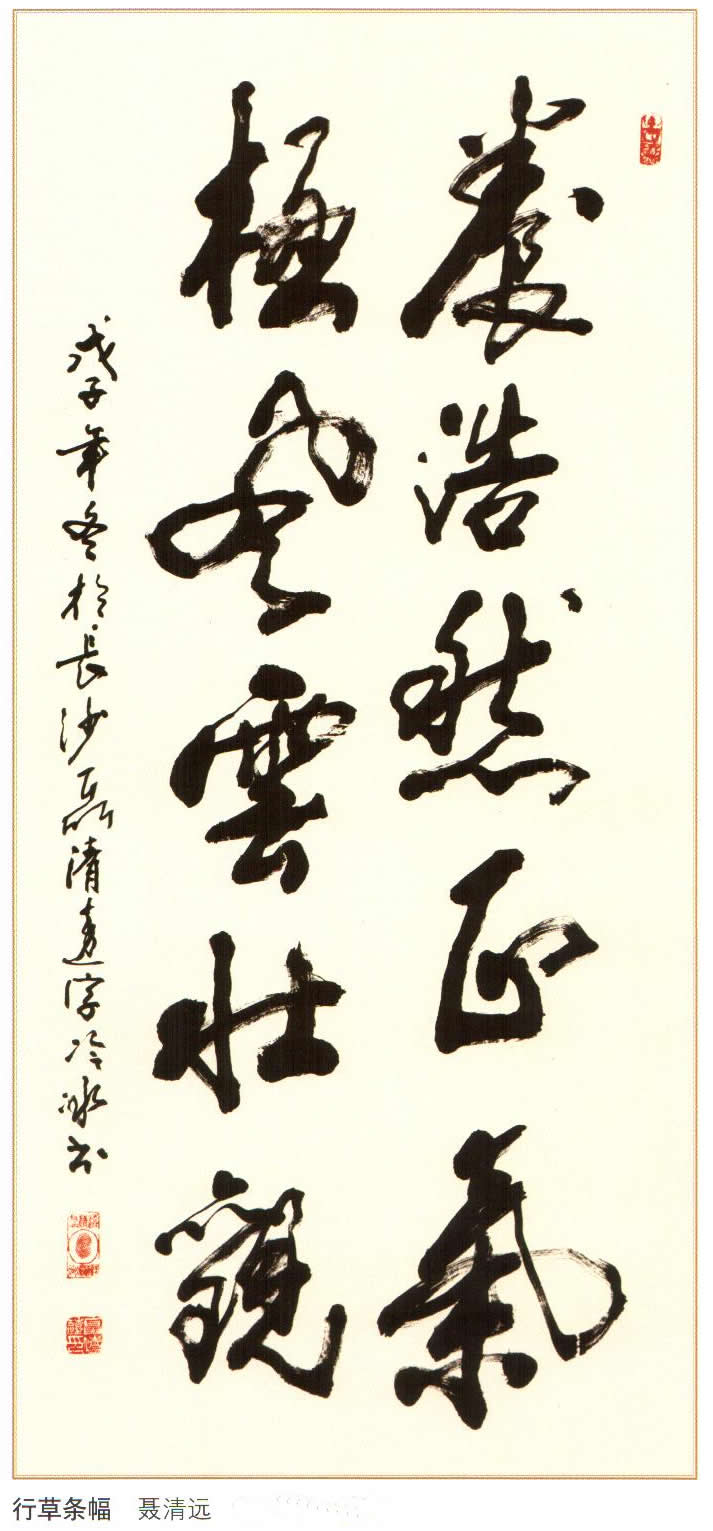 養浩然正氣
極風雲壯觀
戊子年冬於長沙聶清遠字冷冰书
行草条幅 聂清远